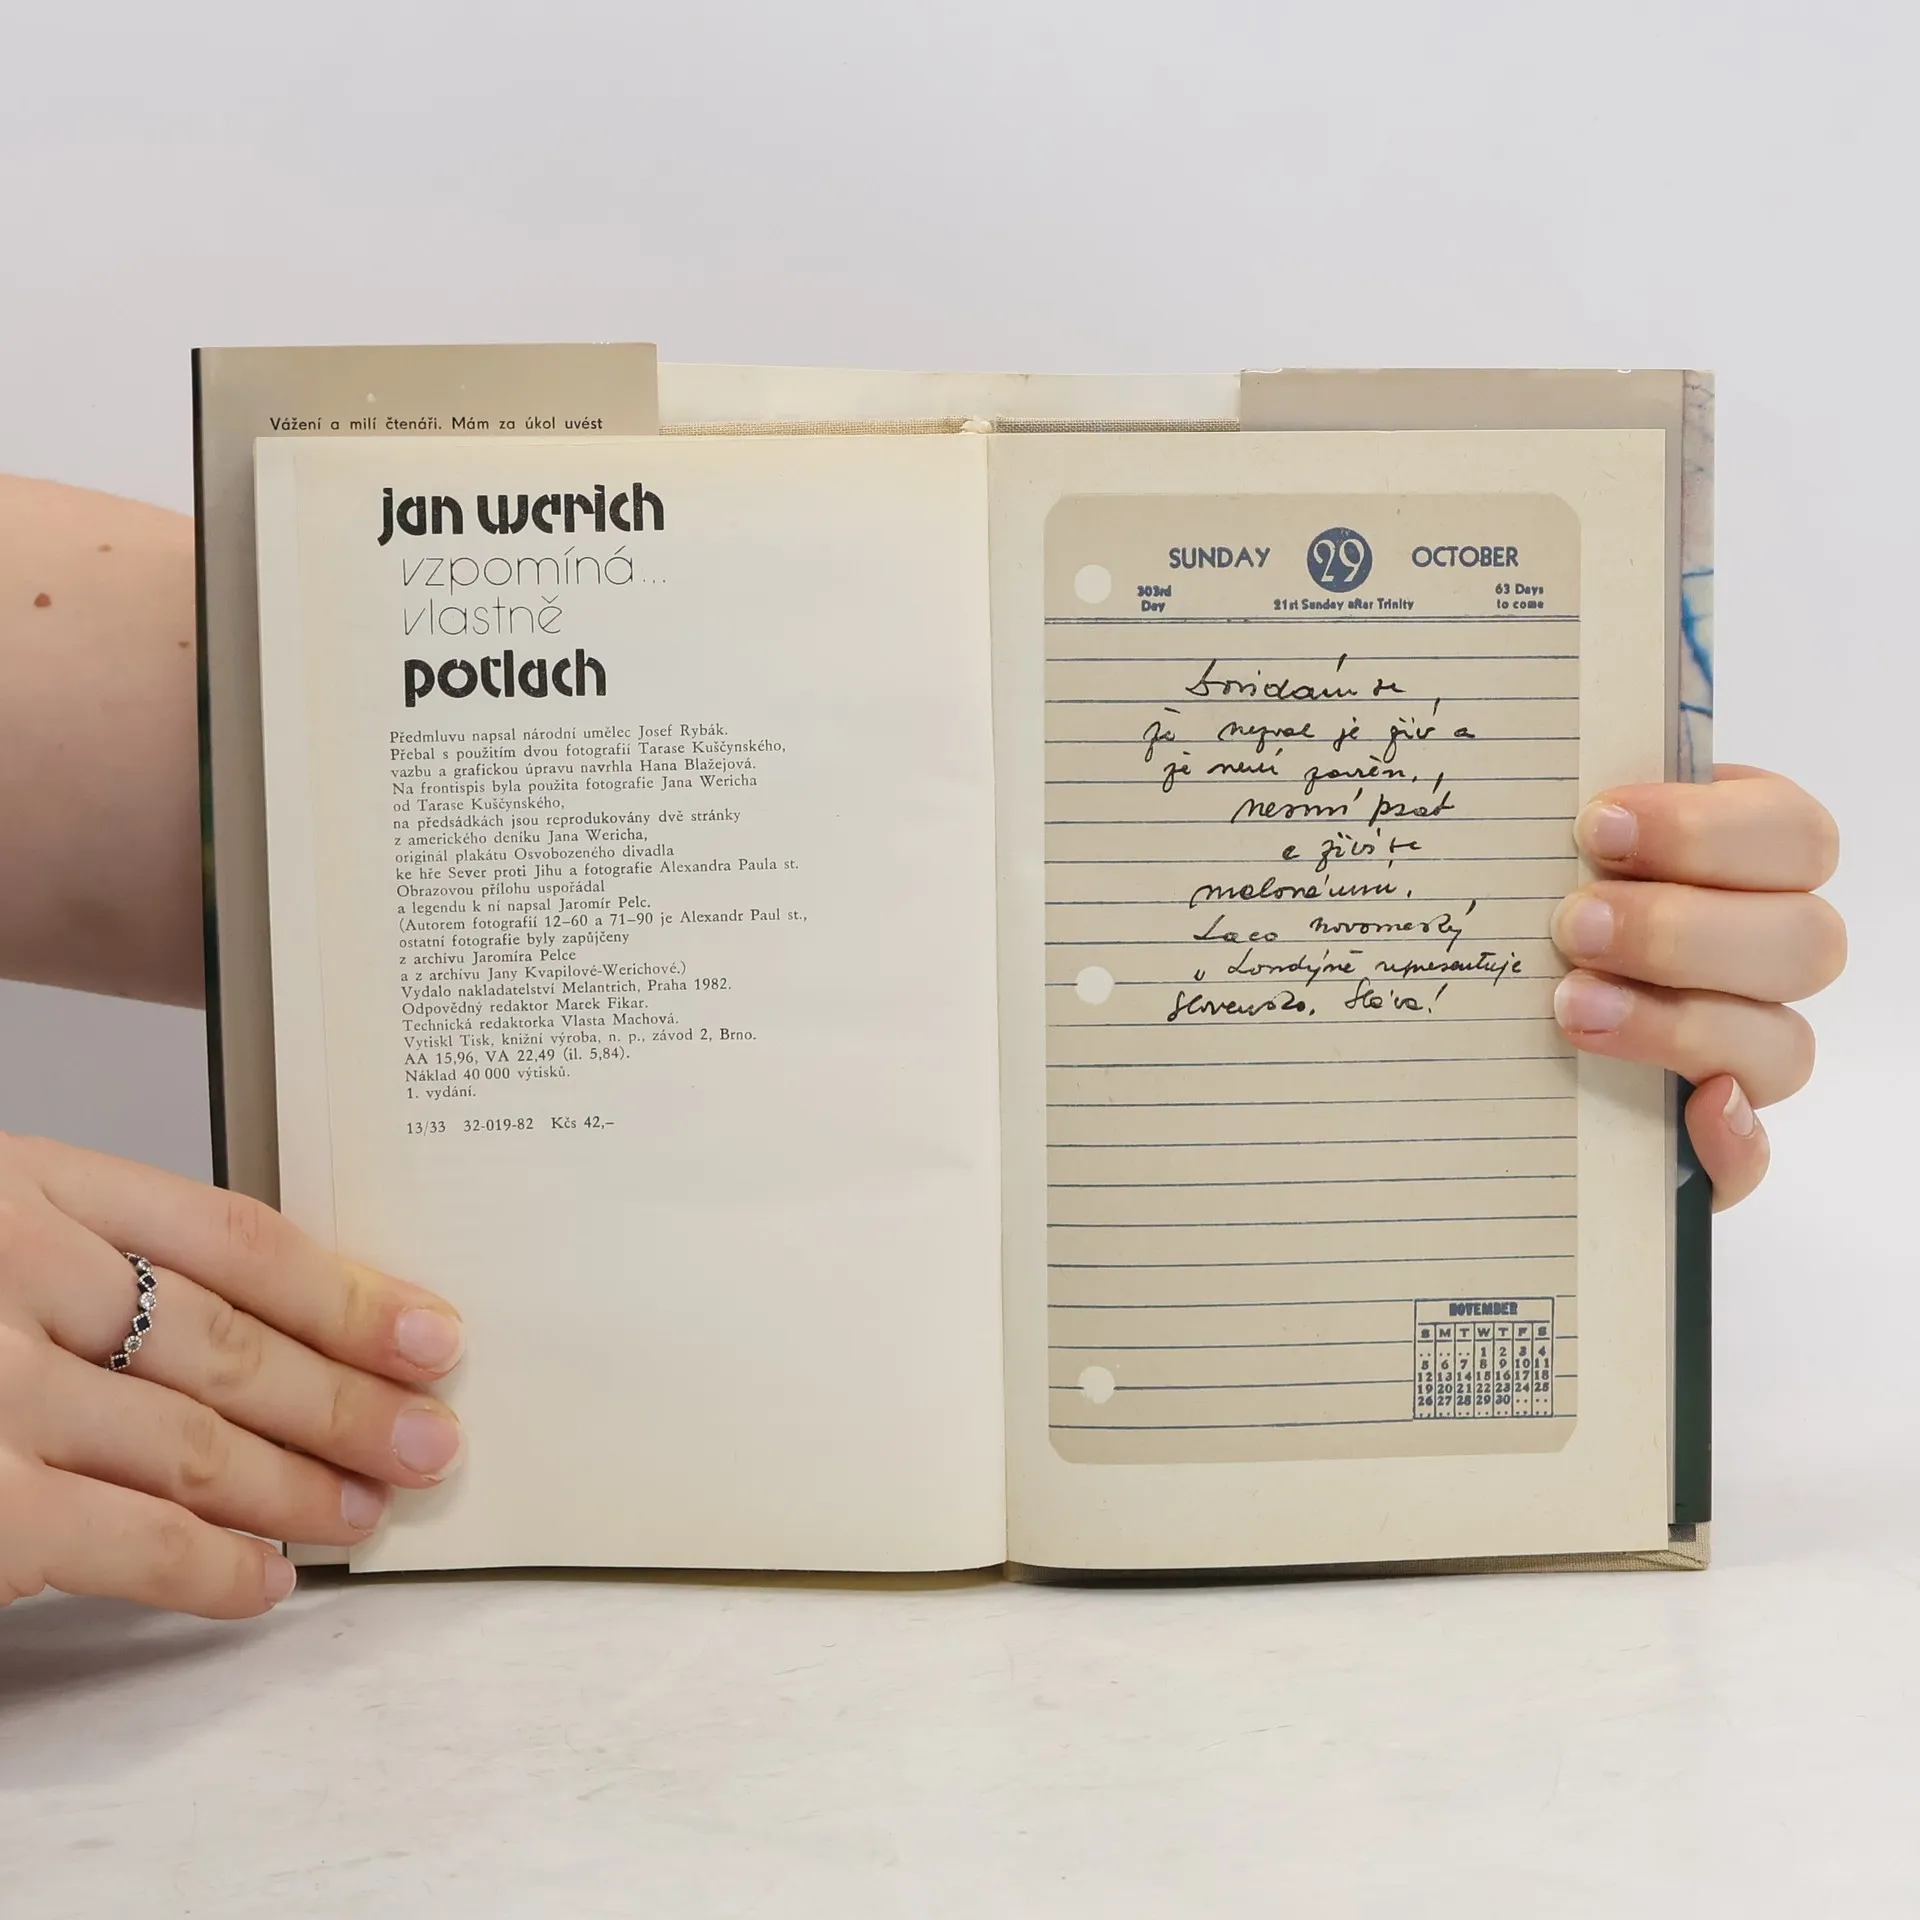 Vážení a milí čtenáři. Mám za úkol uvést
jan werich
vzpomíná...
vlastně
potlach
Předmluvu napsal národní umělec Josef Rybák.
Přebal s použitím dvou fotografií Tarase Kuščynského,
vazbu a grafickou úpravu navrhla Hana Blažejová.
Na frontispis byla použita fotografie Jana Wericha
od Tarase Kuščynského,
na předsádkách jsou reprodukovány dvě stránky
z amerického deníku Jana Wericha,
originál plakátu Osvobozeného divadla
ke hře Sever proti Jihu a fotografie Alexandra Paula st.
Obrazovou přílohu uspořádal
a legendu k ní napsal Jaromír Pelc.
(Autorem fotografií 12–60 a 71–90 je Alexandr Paul st.,
ostatní fotografie byly zapůjčeny
z archívu Jaromíra Pelce
a z archívu Jany Kvapilové-Werichové.)
Vydalo nakladatelství Melantrich, Praha 1982.
Odpovědný redaktor Marek Fikar.
Technická redaktorka Vlasta Machová.
Vytiskl Tisk, knižní výroba, n. p., závod 2, Brno.
AA 15,96, VA 22,49 (il. 5,84).
Náklad 40 000 výtisků.
1. vydání.
13/33 32-019-82 Kčs 42,–
SUNDAY 29 OCTOBER
303rd Day
21st Sunday after Trinity
63 Days to come
Dovídám se,
že nezval je živ a
že není zavřen,
nesmí psát
a živí se
malováním.
Laco novomeský
v Londýně representuje
Slovensko. Sláva!
NOVEMBER
S M T W T F S
.. .. .. 1 2 3 4
5 6 7 8 9 10 11
12 13 14 15 16 17 18
19 20 21 22 23 24 25
26 27 28 29 30 .. ..